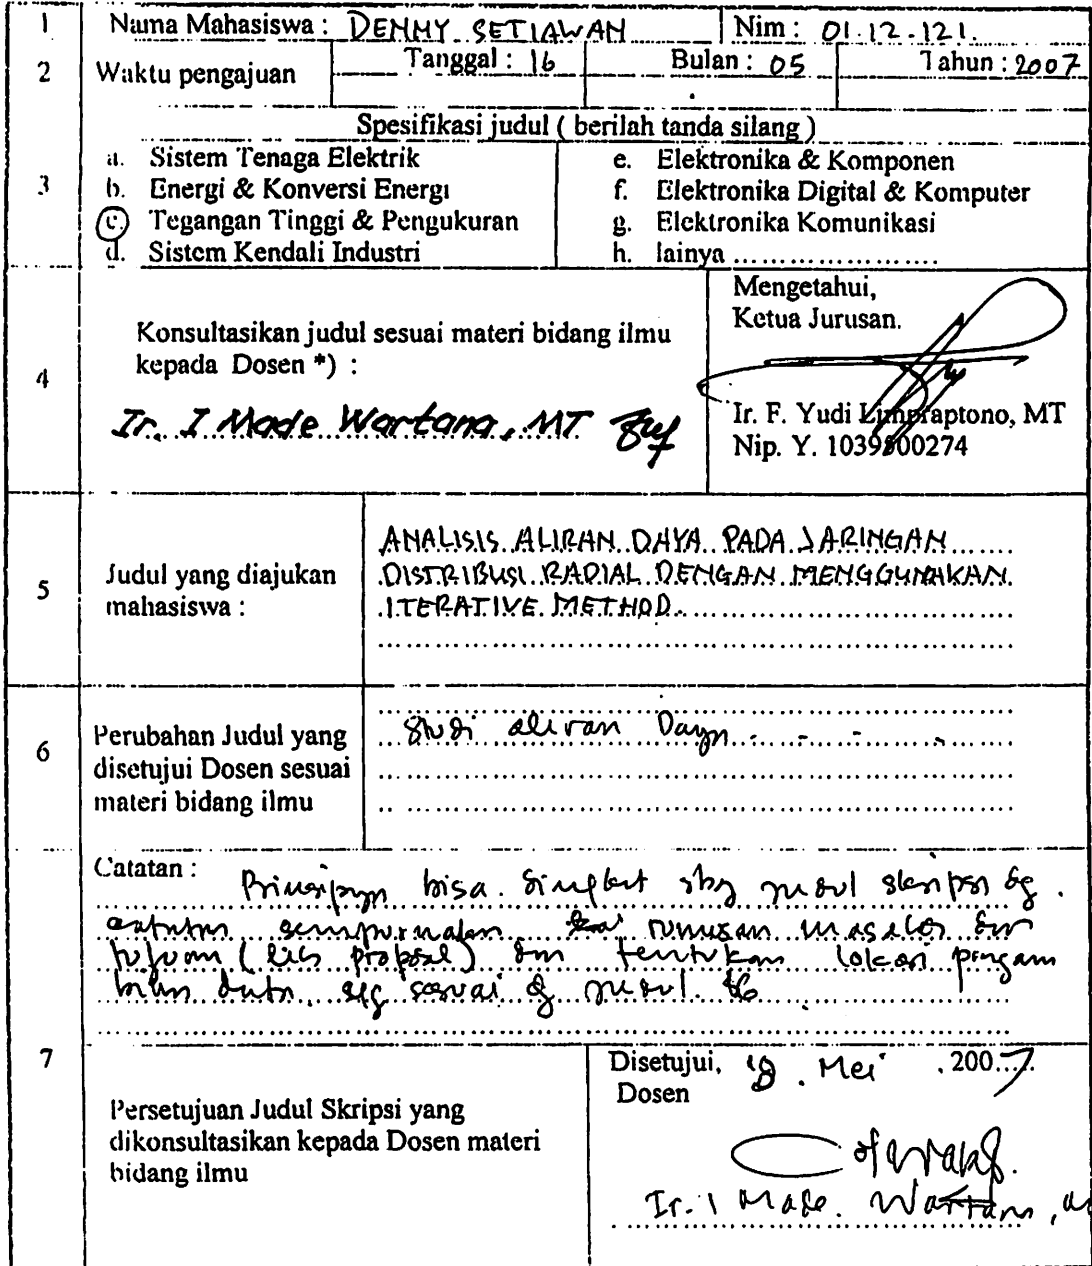 1 Nama Mahasiswa : DENNY SETIAWAN Nim : 01.12.121.
2 Waktu pengajuan Tanggal : 16 Bulan : 05 Tahun : 2007
3 Spesifikasi judul ( berilah tanda silang )
a. Sistem Tenaga Elektrik
b. Energi & Konversi Energi
c. Tegangan Tinggi & Pengukuran
d. Sistem Kendali Industri
e. Elektronika & Komponen
f. Elektronika Digital & Komputer
g. Elektronika Komunikasi
h. lainya .....................
4
Konsultasikan judul sesuai materi bidang ilmu
kepada Dosen *) :
Ir. I Made Wartana, MT
Mengetahui,
Ketua Jurusan.
Ir. F. Yudi Limpraptono, MT
Nip. Y. 1039500274
5
Judul yang diajukan
mahasiswa :
ANALISIS ALIRAN DAYA PADA JARINGAN
DISTRIBUSI RADIAL DENGAN MENGGUNAKAN
ITERATIVE METHOD
6
Perubahan Judul yang
disetujui Dosen sesuai
materi bidang ilmu
Studi aliran Daya
7
Catatan :
bisa judul skripsi
rumusan masalah
tujuan ( proposal) tentukan lokasi pengam
data sesuai judul
Persetujuan Judul Skripsi yang
dikonsultasikan kepada Dosen materi
bidang ilmu
Disetujui, 18 Mei 2007
Dosen
Ir. I Made Wartana,